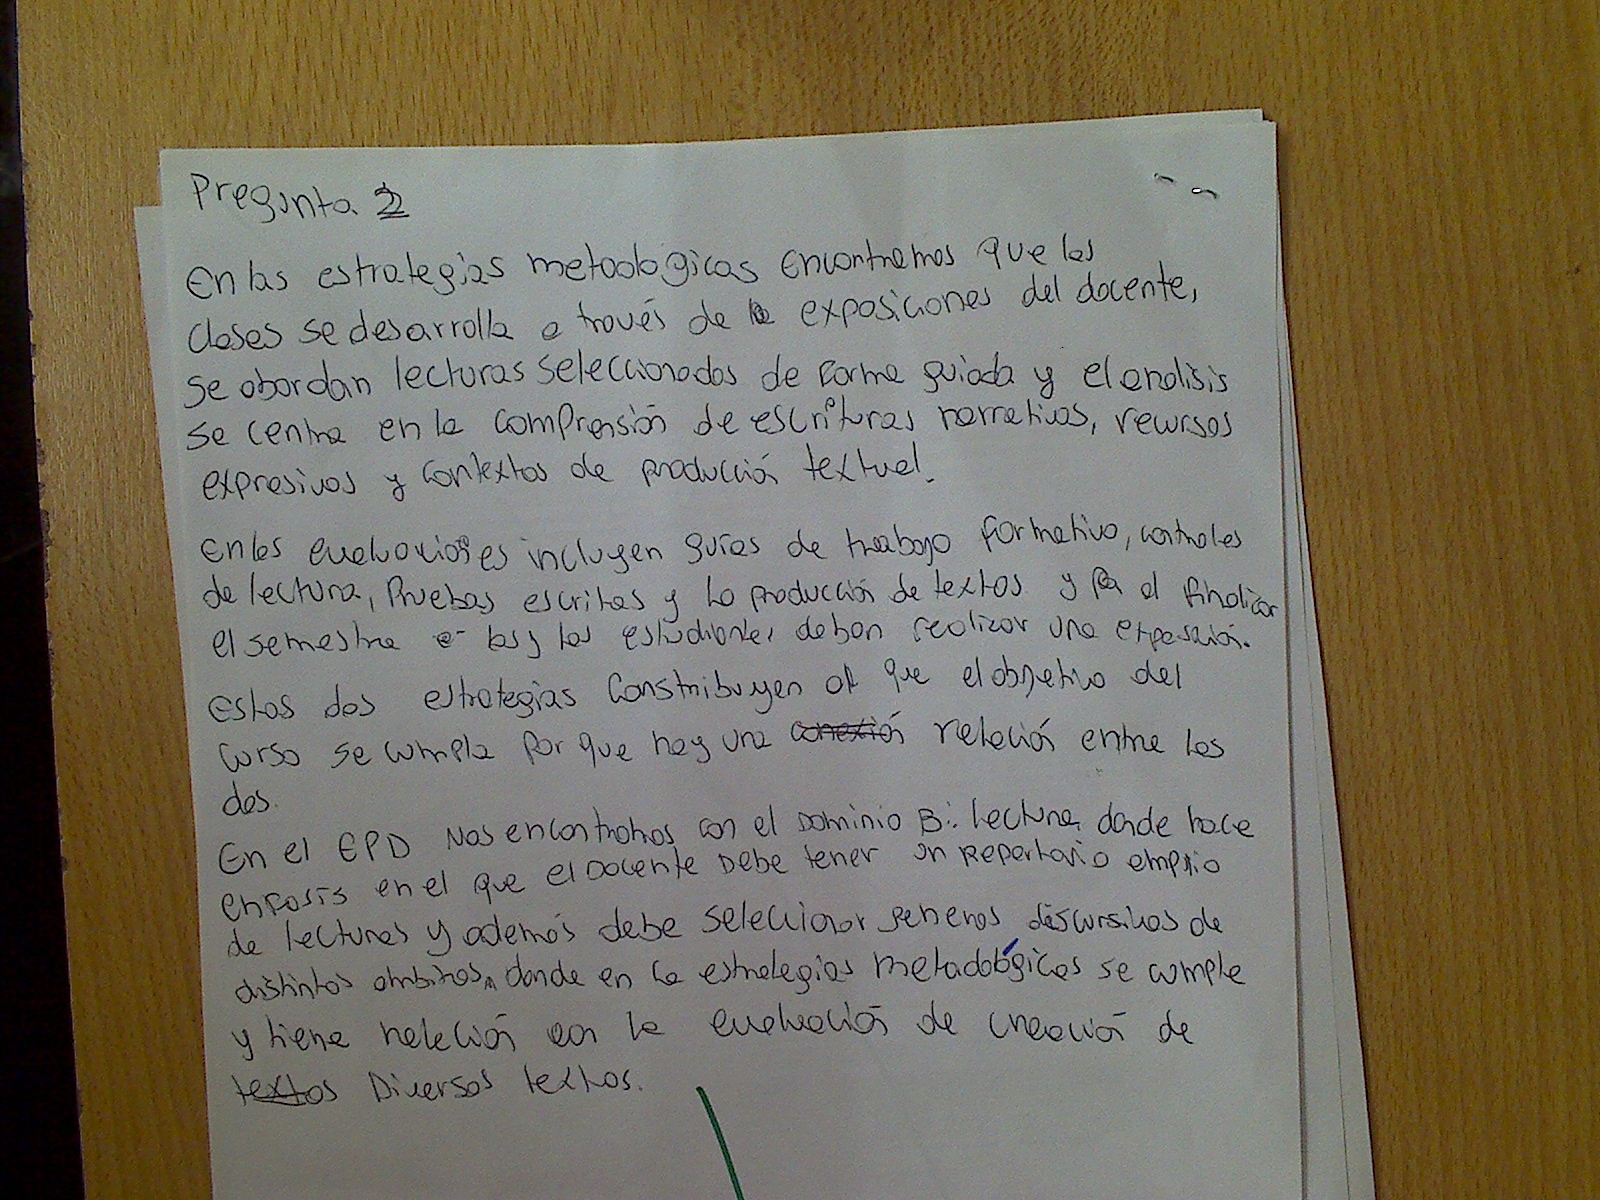 Pregunta 2
En las estrategias metodologicas encontramos que las
clases se desarrolla a través de la exposiciones del docente,
se abordan lecturas seleccionadas de forma guiada y el analisis
se centra en la comprensión de escrituras narrativas, recursos
expresivos y contextos de producción textual.
En las evaluaciones incluyen guías de trabajo formativo, controles
de lectura, Pruebas escritas y La producción de textos y al finalizar
el semestre las y los estudiantes deben realizar una exposición.
Estas dos estrategias Constribuyen al que el objetivo del
curso se cumpla por que hay una conexión relación entre las
dos.
En el EPD Nos encontramos con el Dominio B: Lectura, donde hace
enfasis en el que el Docente Debe tener un Repertorio amplio
de lecturas y además debe seleccionar generos discursivos de
distintos ambitos, donde en la estrategias metadológicas se cumple
y tiene relación con la evaluación de creación de
textos Diversos textos.